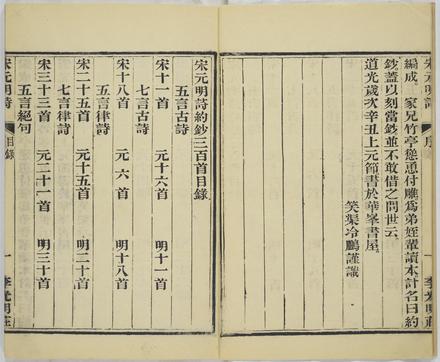 宋元明詩 序
編成 家兄竹亭慫恿付雕爲弟姪輩讀本計名曰約
鈔蓋以刻當鈔並不敢借之問世云
道光歲次辛丑上元節書於華峯書屋
笑渠冷鵬謹識
李光明莊
宋元明詩約鈔三百首目錄
五言古詩
宋十一首 元十六首 明十一首
七言古詩
宋十八首 元六首 明十八首
五言律詩
宋二十五首 元十五首 明二十首
七言律詩
宋三十三首 元二十一首 明三十首
五言絕句
宋元明詩 目錄 一 李光明莊